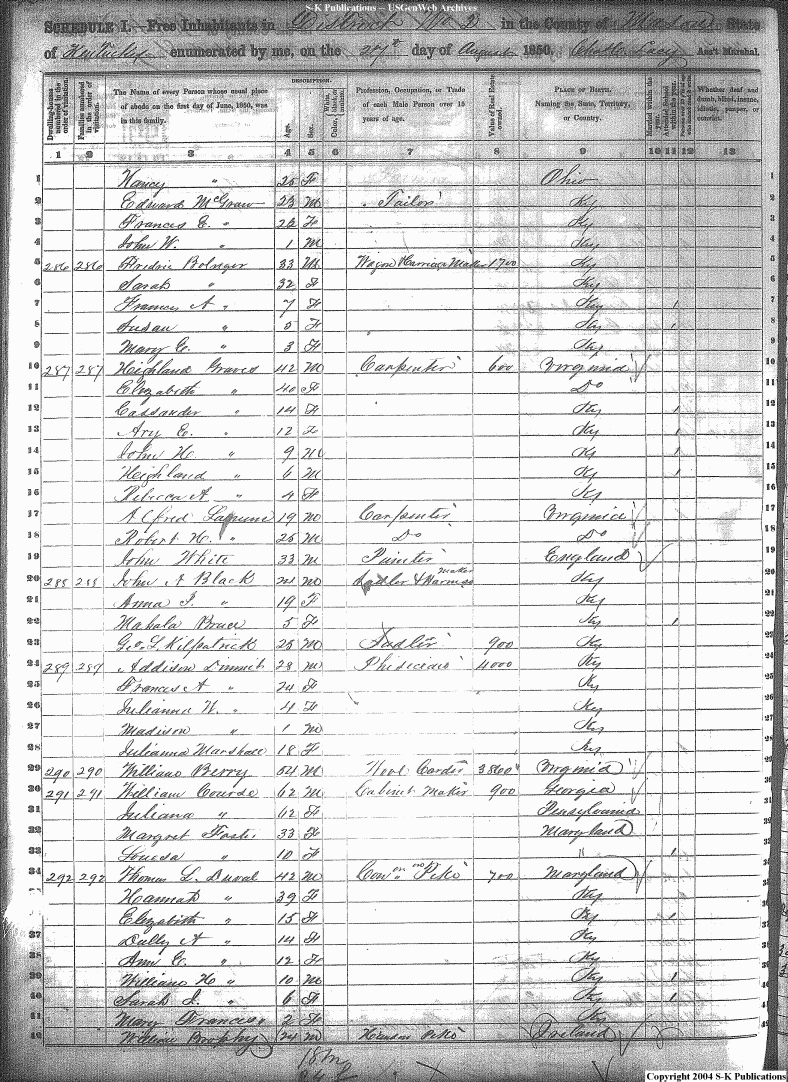 S-K Publications -- USGenWeb Archives
SCHEDULE I.—Free Inhabitants in District No 2 in the County of Mason State
of Kentucky enumerated by me, on the 27th day of August 1850. Charles Lacy Ass't Marshal.
Dwelling-houses numbered in the order of visitation.
Families numbered in the order of visitation.
The Name of every Person whose usual place of abode on the first day of June, 1850, was in this family.
DESCRIPTION.
Age.
Sex.
Color, White, black, or mulatto.
Profession, Occupation, or Trade of each Male Person over 15 years of age.
Value of Real Estate owned.
PLACE OF BIRTH. Naming the State, Territory, or Country.
Married within the year.
Attended School within the year.
Whether deaf and dumb, blind, insane, idiotic, pauper, or convict.
1 2 3 4 5 6 7 8 9 10 11 12 13
1 Nancy " 25 F Ohio 1
2 Edward McGraw 23 M Tailor Ky 2
3 Frances E. " 22 F Ky 3
4 John W. " 1 M Ky 4
5 286 286 Fredric Bolinger 33 M Wagon Harness Maker 1700 Ky 5
6 Sarah " 32 F Ky 6
7 Frances A " 7 F Ky 1 7
8 Susan " 5 F Ky 1 8
9 Mary E. " 3 F Ky 9
10 287 287 Heighland Graves 42 M Carpenter 600 Virginia 10
11 Elizabeth " 40 F Do 11
12 Cassander " 14 F Ky 1 12
13 Ary E. " 12 F Ky 1 13
14 John H. " 9 M Ky 1 14
15 Heighland " 6 M Ky 1 15
16 Rebecca A " 4 F Ky 16
17 Alfred 19 M Carpenter Virginia 17
18 Robert H. " 25 M Do Do 18
19 John White 33 M Painter England 19
20 288 288 John A Black 21 M Sadler & Harness maker Ky 20
21 Anna J. " 19 F Ky 21
22 Mahala Bruce 5 F Ky 1 22
23 Geo L Kilpatrick 25 M Sadler 900 Ky 23
24 289 289 Addison Dimmit 28 M Phisician 4000 Ky 24
25 Frances A " 24 F Ky 25
26 Julianna W. " 4 F Ky 26
27 Madison " 1 M Ky 27
28 Julianna Marshall 18 F Ky 28
29 290 290 William Berry 54 M Wool Carder 3800 Virginia 29
30 291 291 William Course 62 M Cabinet Maker 900 Georgia 30
31 Juliana " 62 F Pensylvania 31
32 Margret Foster 33 F Maryland 32
33 Louesa " 10 F " 1 33
34 292 292 Thomas L. Duval 42 M on Pike 700 Maryland 34
Hannah " 39 F Ky
Elizabeth " 15 F Ky 1
37 Dully A " 14 F Ky
38 Ann E. " 12 F Ky
39 William H " 10 M Ky 1
40 Sarah J. " 6 F Ky 1
41 Mary Frances " 2 F Ky
42 William Brophy 24 M Pike Ireland 42
18 M
Copyright 2004 S-K Publications